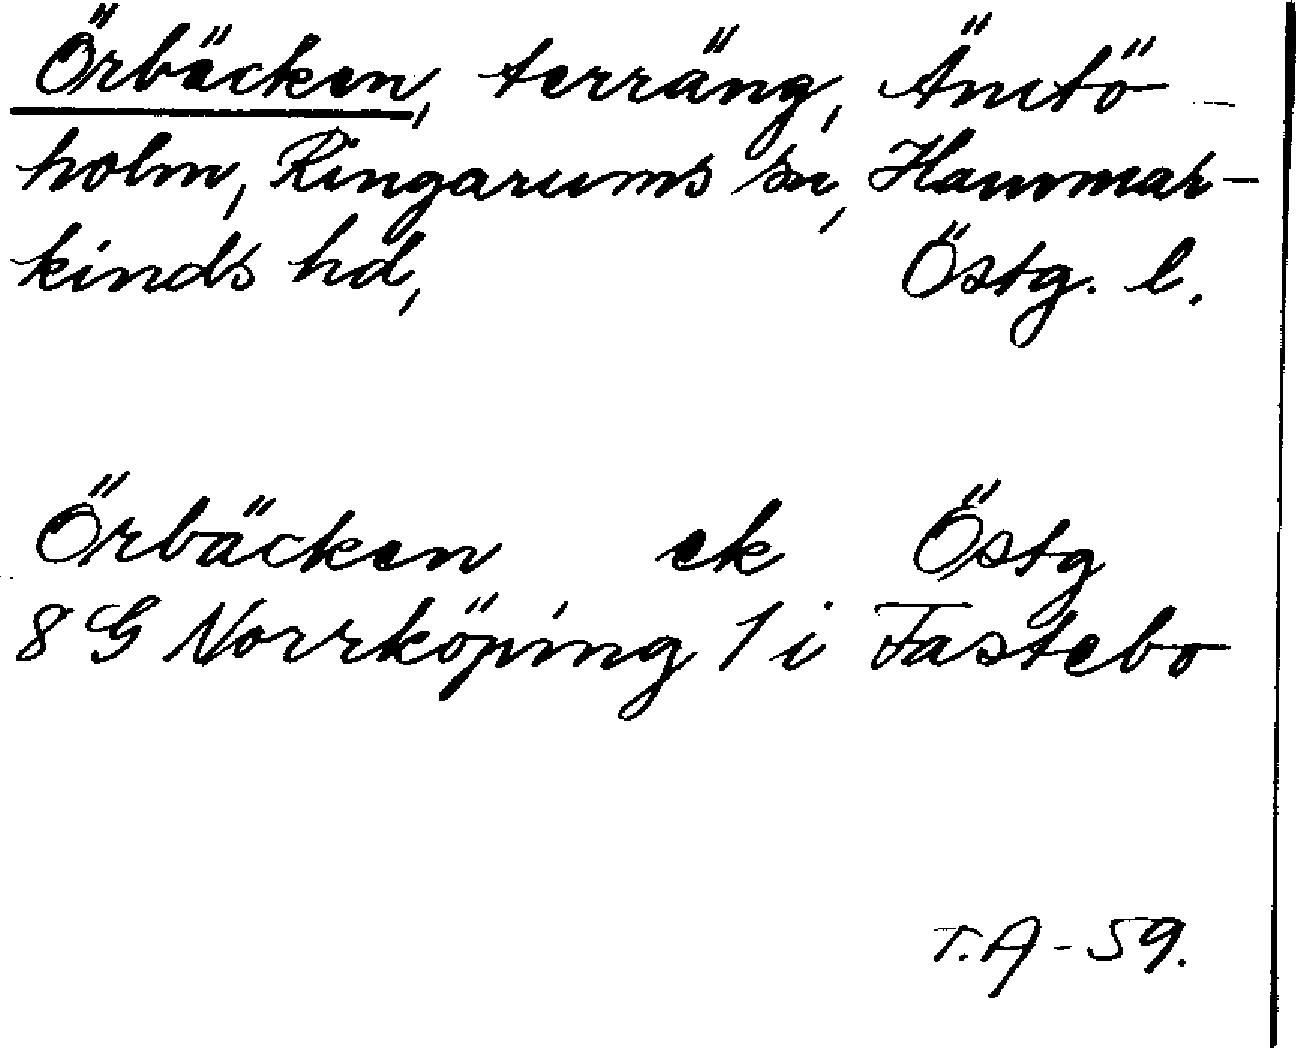 Örbäcken, terräng, Ämtö-
holm, Ringarums sn, Hammar-
kinds hd, Östg. l.
Örbäcken ek Östg
8 G Norrköping 1 i Fastebo
T.A-59.